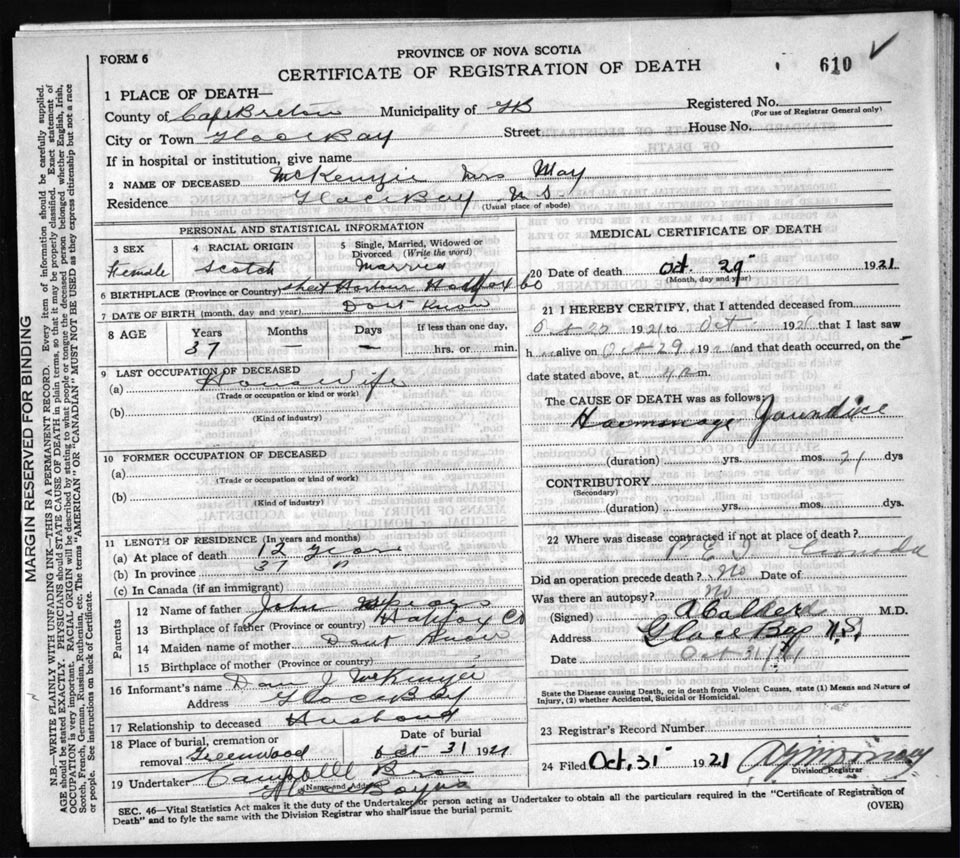 FORM 6
PROVINCE OF NOVA SCOTIA
CERTIFICATE OF REGISTRATION OF DEATH
610 ✓
1 PLACE OF DEATH—
County of Cape Breton Municipality of GB Registered No.
(For use of Registrar General only)
City or Town Glace Bay Street House No.
If in hospital or institution, give name
2 NAME OF DECEASED McKenzie Mrs May
Residence Glace Bay N S
(Usual place of abode)
PERSONAL AND STATISTICAL INFORMATION
3 SEX Female
4 RACIAL ORIGIN Scotch
5 Single, Married, Widowed or Divorced (Write the word) Married
6 BIRTHPLACE (Province or Country) Sheet Harbour Halifax Co
7 DATE OF BIRTH (month, day and year) Dont Know
8 AGE Years Months Days If less than one day,
37 — — hrs. or min.
9 LAST OCCUPATION OF DECEASED
(a) House Wife
(Trade or occupation or kind of work)
(b)
(Kind of industry)
10 FORMER OCCUPATION OF DECEASED
(a)
(Trade or occupation or kind of work)
(b)
(Kind of industry)
11 LENGTH OF RESIDENCE (In years and months)
(a) At place of death 12 years
(b) In province 37 "
(c) In Canada (if an immigrant)
Parents
12 Name of father John
13 Birthplace of father (Province or country) Halifax Co
14 Maiden name of mother Dont Know
15 Birthplace of mother (Province or country)
16 Informant's name Dan J McKenzie
Address Glace Bay
17 Relationship to deceased Husband
18 Place of burial, cremation or removal Greenwood Date of burial Oct 31 1921
19 Undertaker Campbell Bros
(Name and Address)
MEDICAL CERTIFICATE OF DEATH
20 Date of death Oct. 29 1921
(Month, day and year)
21 I HEREBY CERTIFY, that I attended deceased from
Oct 20 1921 to Oct 192 that I last saw
h alive on Oct 29 192 and that death occurred, on the
date stated above, at 4 a m.
The CAUSE OF DEATH was as follows:
Jaundice
(duration) yrs. mos. 21 dys
CONTRIBUTORY
(Secondary)
(duration) yrs. mos. dys.
22 Where was disease contracted if not at place of death?
P E I Canada
Did an operation precede death? No Date of
Was there an autopsy? No
(Signed) A Calder M.D.
Address Glace Bay N.S.
Date Oct 31/21
State the Disease causing Death, or in death from Violent Causes, state (1) Means and Nature of Injury, (2) whether Accidental, Suicidal or Homicidal.
23 Registrar's Record Number
24 Filed Oct, 31 1921
Division Registrar
SEC. 46—Vital Statistics Act makes it the duty of the Undertaker or person acting as Undertaker to obtain all the particulars required in the "Certificate of Registration of
Death" and to fyle the same with the Division Registrar who shall issue the burial permit.
(OVER)
MARGIN RESERVED FOR BINDING
N.B.—WRITE PLAINLY WITH UNFADING INK—THIS IS A PERMANENT RECORD. Every item of information should be carefully supplied.
AGE should be stated EXACTLY. PHYSICIANS should STATE CAUSE OF DEATH in plain terms, so that it may be properly classified. Exact statement of
OCCUPATION is very important. RACIAL ORIGIN will be described by stating to what people or tongue the deceased person belonged whether English, Irish,
Scotch, French, German, Russian, Ruthenian, etc. The terms "AMERICAN" OR "CANADIAN" MUST NOT BE USED as they express citizenship but not a race
or people. See instructions on back of Certificate.